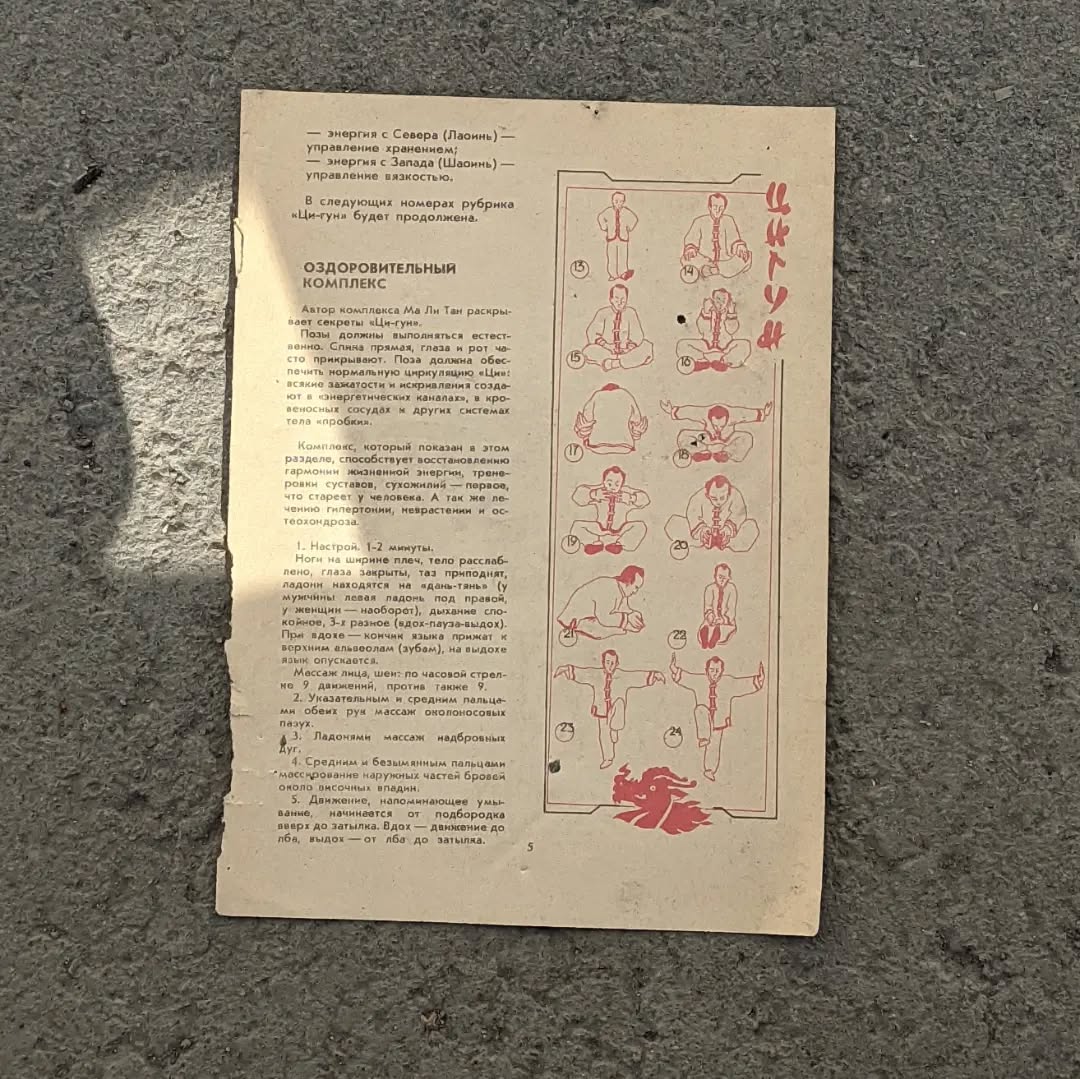 — энергия с Севера (Лаоинь) —
управление хранением;
— энергия с Запада (Шаоинь) —
управление вязкостью.
В следующих номерах рубрика
«Ци-гун» будет продолжена.
ОЗДОРОВИТЕЛЬНЫЙ
КОМПЛЕКС
Автор комплекса Ма Ли Тан раскры-
вает секреты «Ци-гун».
Позы должны выполняться естест-
венно. Спина прямая, глаза и рот ча-
сто прикрывают. Поза должна обес-
печить нормальную циркуляцию «Ци»:
всякие зажатости и искривления созда-
ют в «энергетических каналах», в кро-
веносных сосудах и других системах
тела «пробки».
Комплекс, который показан в этом
разделе, способствует восстановлению
гармонии жизненной энергии, трене-
ровки суставов, сухожилий — первое,
что стареет у человека. А так же ле-
чению гипертонии, неврастении и ос-
теохондроза.
1. Настрой. 1-2 минуты.
Ноги на ширине плеч, тело расслаб-
лено, глаза закрыты, таз приподнят,
ладони находятся на «дань-тянь» (у
мужчины левая ладонь под правой,
у женщин — наоборот), дыхание спо-
койное, 3-х разное (вдох-пауза-выдох).
При вдохе — кончик языка прижат к
верхним альвеолам (зубам), на выдохе
язык опускается.
Массаж лица, шеи: по часовой стрел-
ке 9 движений, против также 9.
2. Указательным и средним пальца-
ми обеих рук массаж околоносовых
пазух.
3. Ладонями массаж надбровных
дуг.
4. Средним и безымянным пальцами
массирование наружных частей бровей
около височных впадин.
5. Движение, напоминающее умы-
вание, начинается от подбородка
вверх до затылка. Вдох — движение до
лба, выдох — от лба до затылка.
5
ЦИГУН
13
14
15
16
17
18
19
20
21
22
23
24